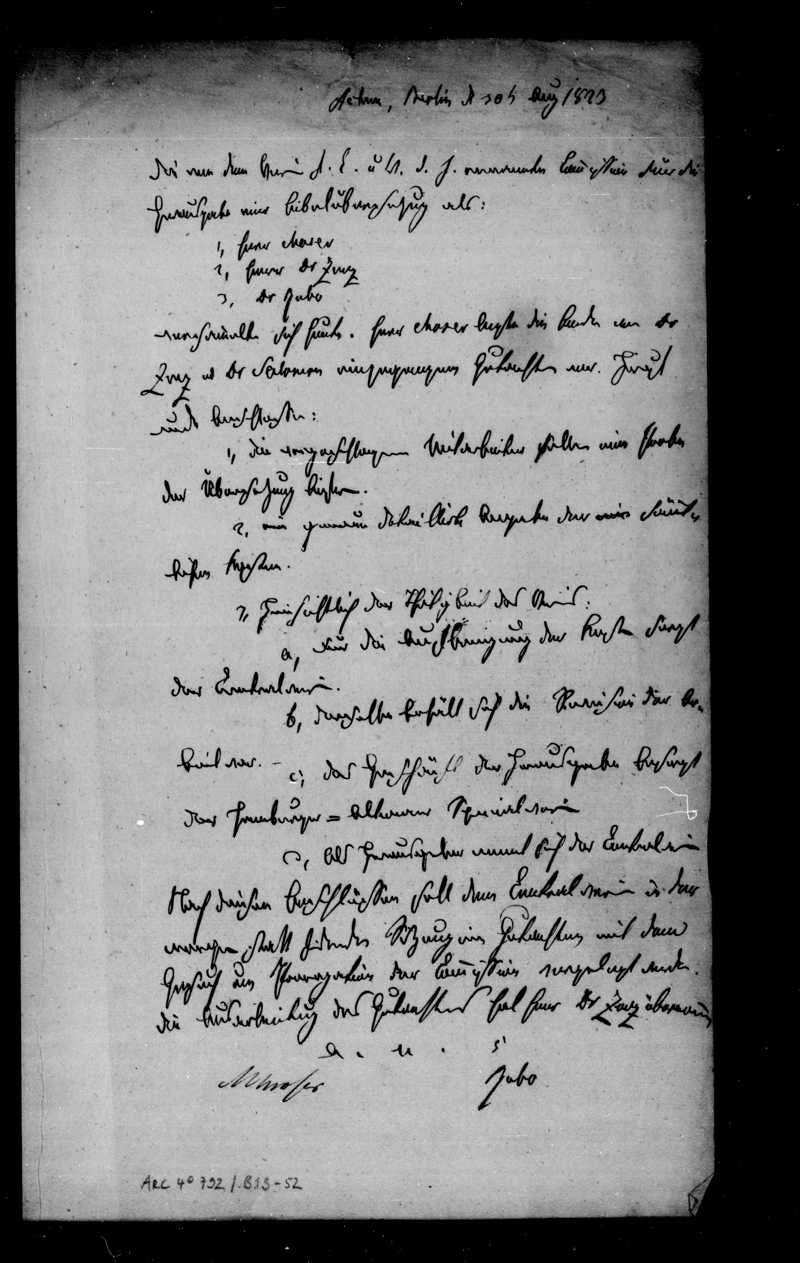 Actum, Berlin d 30t Aug 1823
Die von dem Verein f. C. u W. d. J. ernannte Commission für die
Herausgabe einer Bibelübersetzung als:
1, Herr Moser
2, Herr Dr Zunz
3, Dr Jubo
versammelte sich heute. Herr Moser legte die beiden von Dr
Zunz u Dr Salomon eingegangenen Gutachten vor. Hierauf
wurde beschlossen:
1, die vorgeschlagenen Mitarbeiter sollen eine Probe
der Übersetzung liefern.
2, eine genaue detaillirte Angabe der
Kosten.
3, Hinsichtlich der Thätigkeit des Vereins:
a, Für die Aufbringung der Kosten sorgt
der Centralverein.
b, derselbe behält sich die Revision der Ar-
beit vor. - c, das Geschäft der Herausgabe besorgt
der Hamburger = Altonaer Specialverein
als Herausgeber nennt sich der Centralverein
Nach diesen Beschlüssen soll dem Centralverein in der
morgen statt findenden Sitzung ein Gutachten mit dem
Gesuch um Prorogation der Commission vorgelegt werden.
die Ausarbeitung des Gutachtens hat Herr Dr Zunz übernomm
a. u. s
MMoser Jubo
ARC 4° 792/B13-52